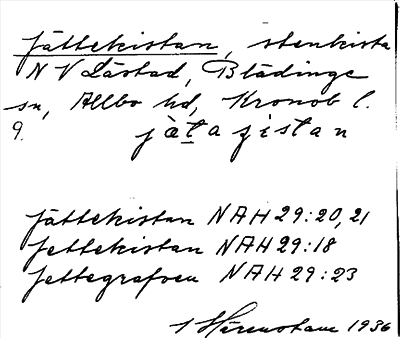 Jättekistan, stenkista
N V Låstad, Blädinge
sn, Allbo hd, Kronob l.
9. jätaʒistan
Jättekistan NAH 29:20, 21
Jettekistan NAH 29:18
Jettegrafven NAH 29:23
1936